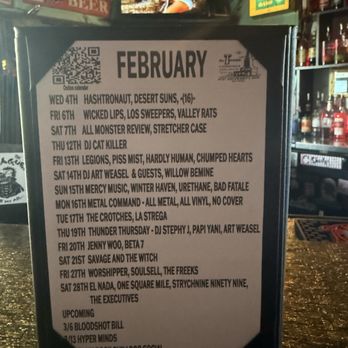 BEER
Online calendar
FEBRUARY
WED 4TH HASHTRONAUT, DESERT SUNS, -(16)-
FRI 6TH WICKED LIPS, LOS SWEEPERS, VALLEY RATS
SAT 7TH ALL MONSTER REVIEW, STRETCHER CASE
THU 12TH DJ CAT KILLER
FRI 13TH LEGIONS, PISS MIST, HARDLY HUMAN, CHUMPED HEARTS
SAT 14TH DJ ART WEASEL & GUESTS, WILLOW BEMINE
SUN 15TH MERCY MUSIC, WINTER HAVEN, URETHANE, BAD FATALE
MON 16TH METAL COMMAND - ALL METAL, ALL VINYL, NO COVER
TUE 17TH THE CROTCHES, LA STREGA
THU 19TH THUNDER THURSDAY - DJ STEPHY J, PAPI YANI, ART WEASEL
FRI 20TH JENNY WOO, BETA 7
SAT 21ST SAVAGE AND THE WITCH
FRI 27TH WORSHIPPER, SOULSELL, THE FREEKS
SAT 28TH EL NADA, ONE SQUARE MILE, STRYCHNINE NINETY NINE,
THE EXECUTIVES
UPCOMING
3/6 BLOODSHOT BILL
3/13 HYPER MINDS